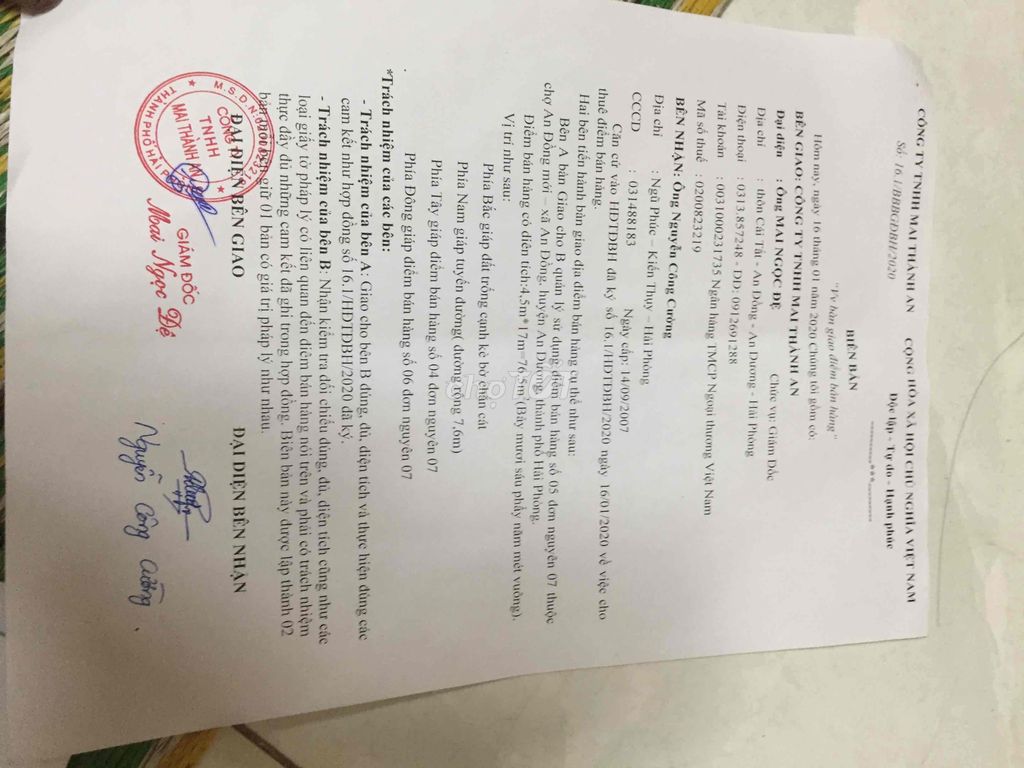 CÔNG TY TNHH MAI THÀNH AN CỘNG HÒA XÃ HỘI CHỦ NGHĨA VIỆT NAM
Số: 16.1/BBBGĐBH/2020 Độc lập - Tự do - Hạnh phúc
----------***----------
BIÊN BẢN
"Về bàn giao điểm bán hàng"
Hôm nay, ngày 16 tháng 01 năm 2020 Chúng tôi gồm có:
BÊN GIAO: CÔNG TY TNHH MAI THÀNH AN
Đại diện : Ông MAI NGỌC ĐỆ Chức vụ: Giám Đốc
Địa chỉ : thôn Cái Tắt - An Đồng - An Dương - Hải Phòng
Điện thoại : 0313.857248 - DĐ: 0912691288
Tài khoản : 0031000231735 Ngân hàng TMCP Ngoại thương Việt Nam
Mã số thuế : 0200823219
BÊN NHẬN: Ông Nguyễn Công Cường
Địa chỉ : Ngũ Phúc – Kiến Thụy – Hải Phòng
CCCD : 03148183 Ngày cấp: 14/09/2007
Căn cứ vào HĐTĐBH đã ký số 16.1/HĐTĐBH/2020 ngày 16/01/2020 về việc cho
thuê điểm bán hàng.
Hai bên tiến hành bàn giao địa điểm bán hàng cụ thể như sau:
Bên A bàn Giao cho B quản lý sử dụng điểm bán hàng số 05 đơn nguyên 07 thuộc
chợ An Đồng mới – xã An Đồng, huyện An Dương, thành phố Hải Phòng.
Điểm bán hàng có diện tích:4,5m*17m=76,5m²(Bảy mươi sáu phẩy năm mét vuông).
Vị trí như sau:
Phía Bắc giáp đất trống cạnh kè bờ chắn cát
Phía Nam giáp tuyến đường( đường rộng 7,6m)
Phía Tây giáp điểm bán hàng số 04 đơn nguyên 07
Phía Đông giáp điểm bán hàng số 06 đơn nguyên 07
*Trách nhiệm của các bên:
- Trách nhiệm của bên A: Giao cho bên B đúng, đủ, diện tích và thực hiện đúng các
cam kết như hợp đồng số 16.1/HĐTĐBH/2020 đã ký.
- Trách nhiệm của bên B: Nhận kiểm tra đối chiếu đúng, đủ, diện tích cũng như các
loại giấy tờ pháp lý có liên quan đến điểm bán hàng nói trên và phải có trách nhiệm
thực đầy đủ những cam kết đã ghi trong hợp đồng. Biên bản này được lập thành 02
bản, giữ 01 bản có giá trị pháp lý như nhau.
ĐẠI DIỆN BÊN GIAO ĐẠI DIỆN BÊN NHẬN
CÔNG TY
TNHH
MAI THÀNH AN
THÀNH PHỐ HẢI
GIÁM ĐỐC
Mai Ngọc Đệ
Nguyễn Công Cường
chợTỐT